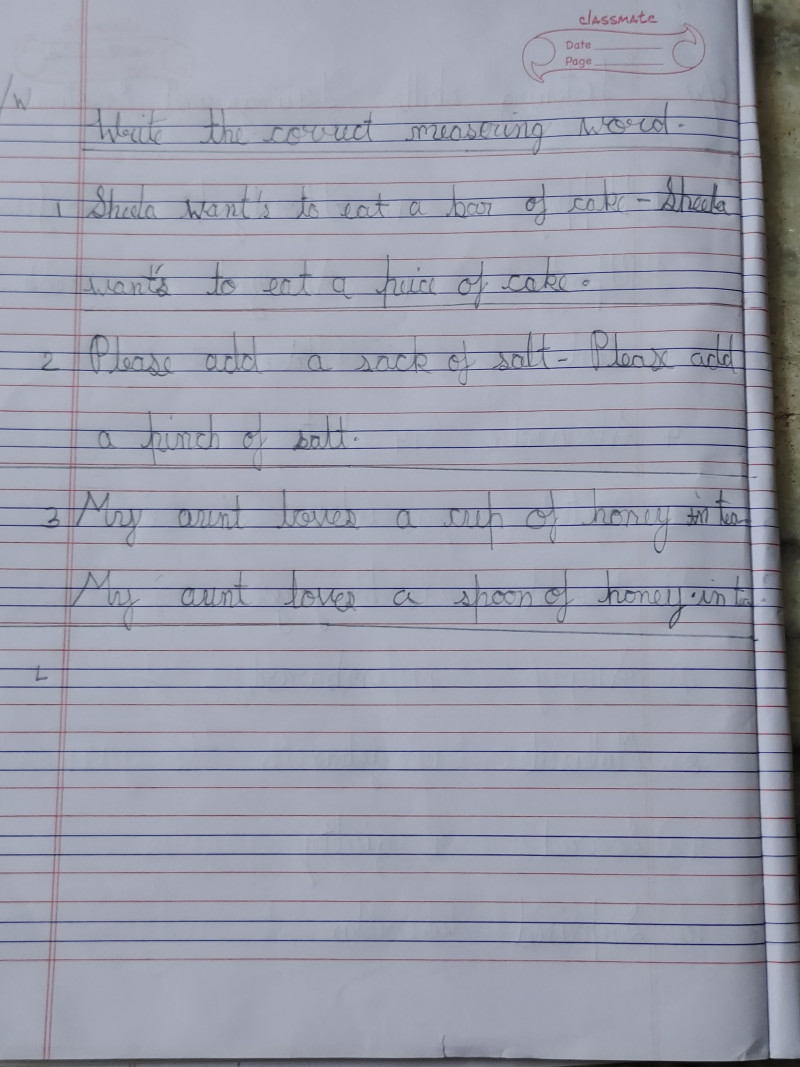 classmate
Date
Page
/W
Write the correct measuring word.
1 Sheela want's to eat a bar of cake - Sheela
want's to eat a peice of cake.
2 Please add a sack of salt - Please add
a pinch of salt.
3 My aunt loves a cup of honey in tea
My aunt loves a spoon of honey. in